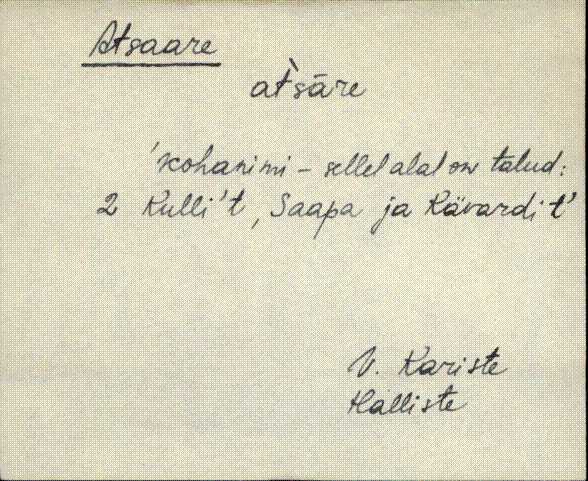 Atsaare
at̀sāre
'kohanimi – sellel alal on talud:
2 Kulli't, Saapa ja Kävardi t'
V. Kariste
Halliste